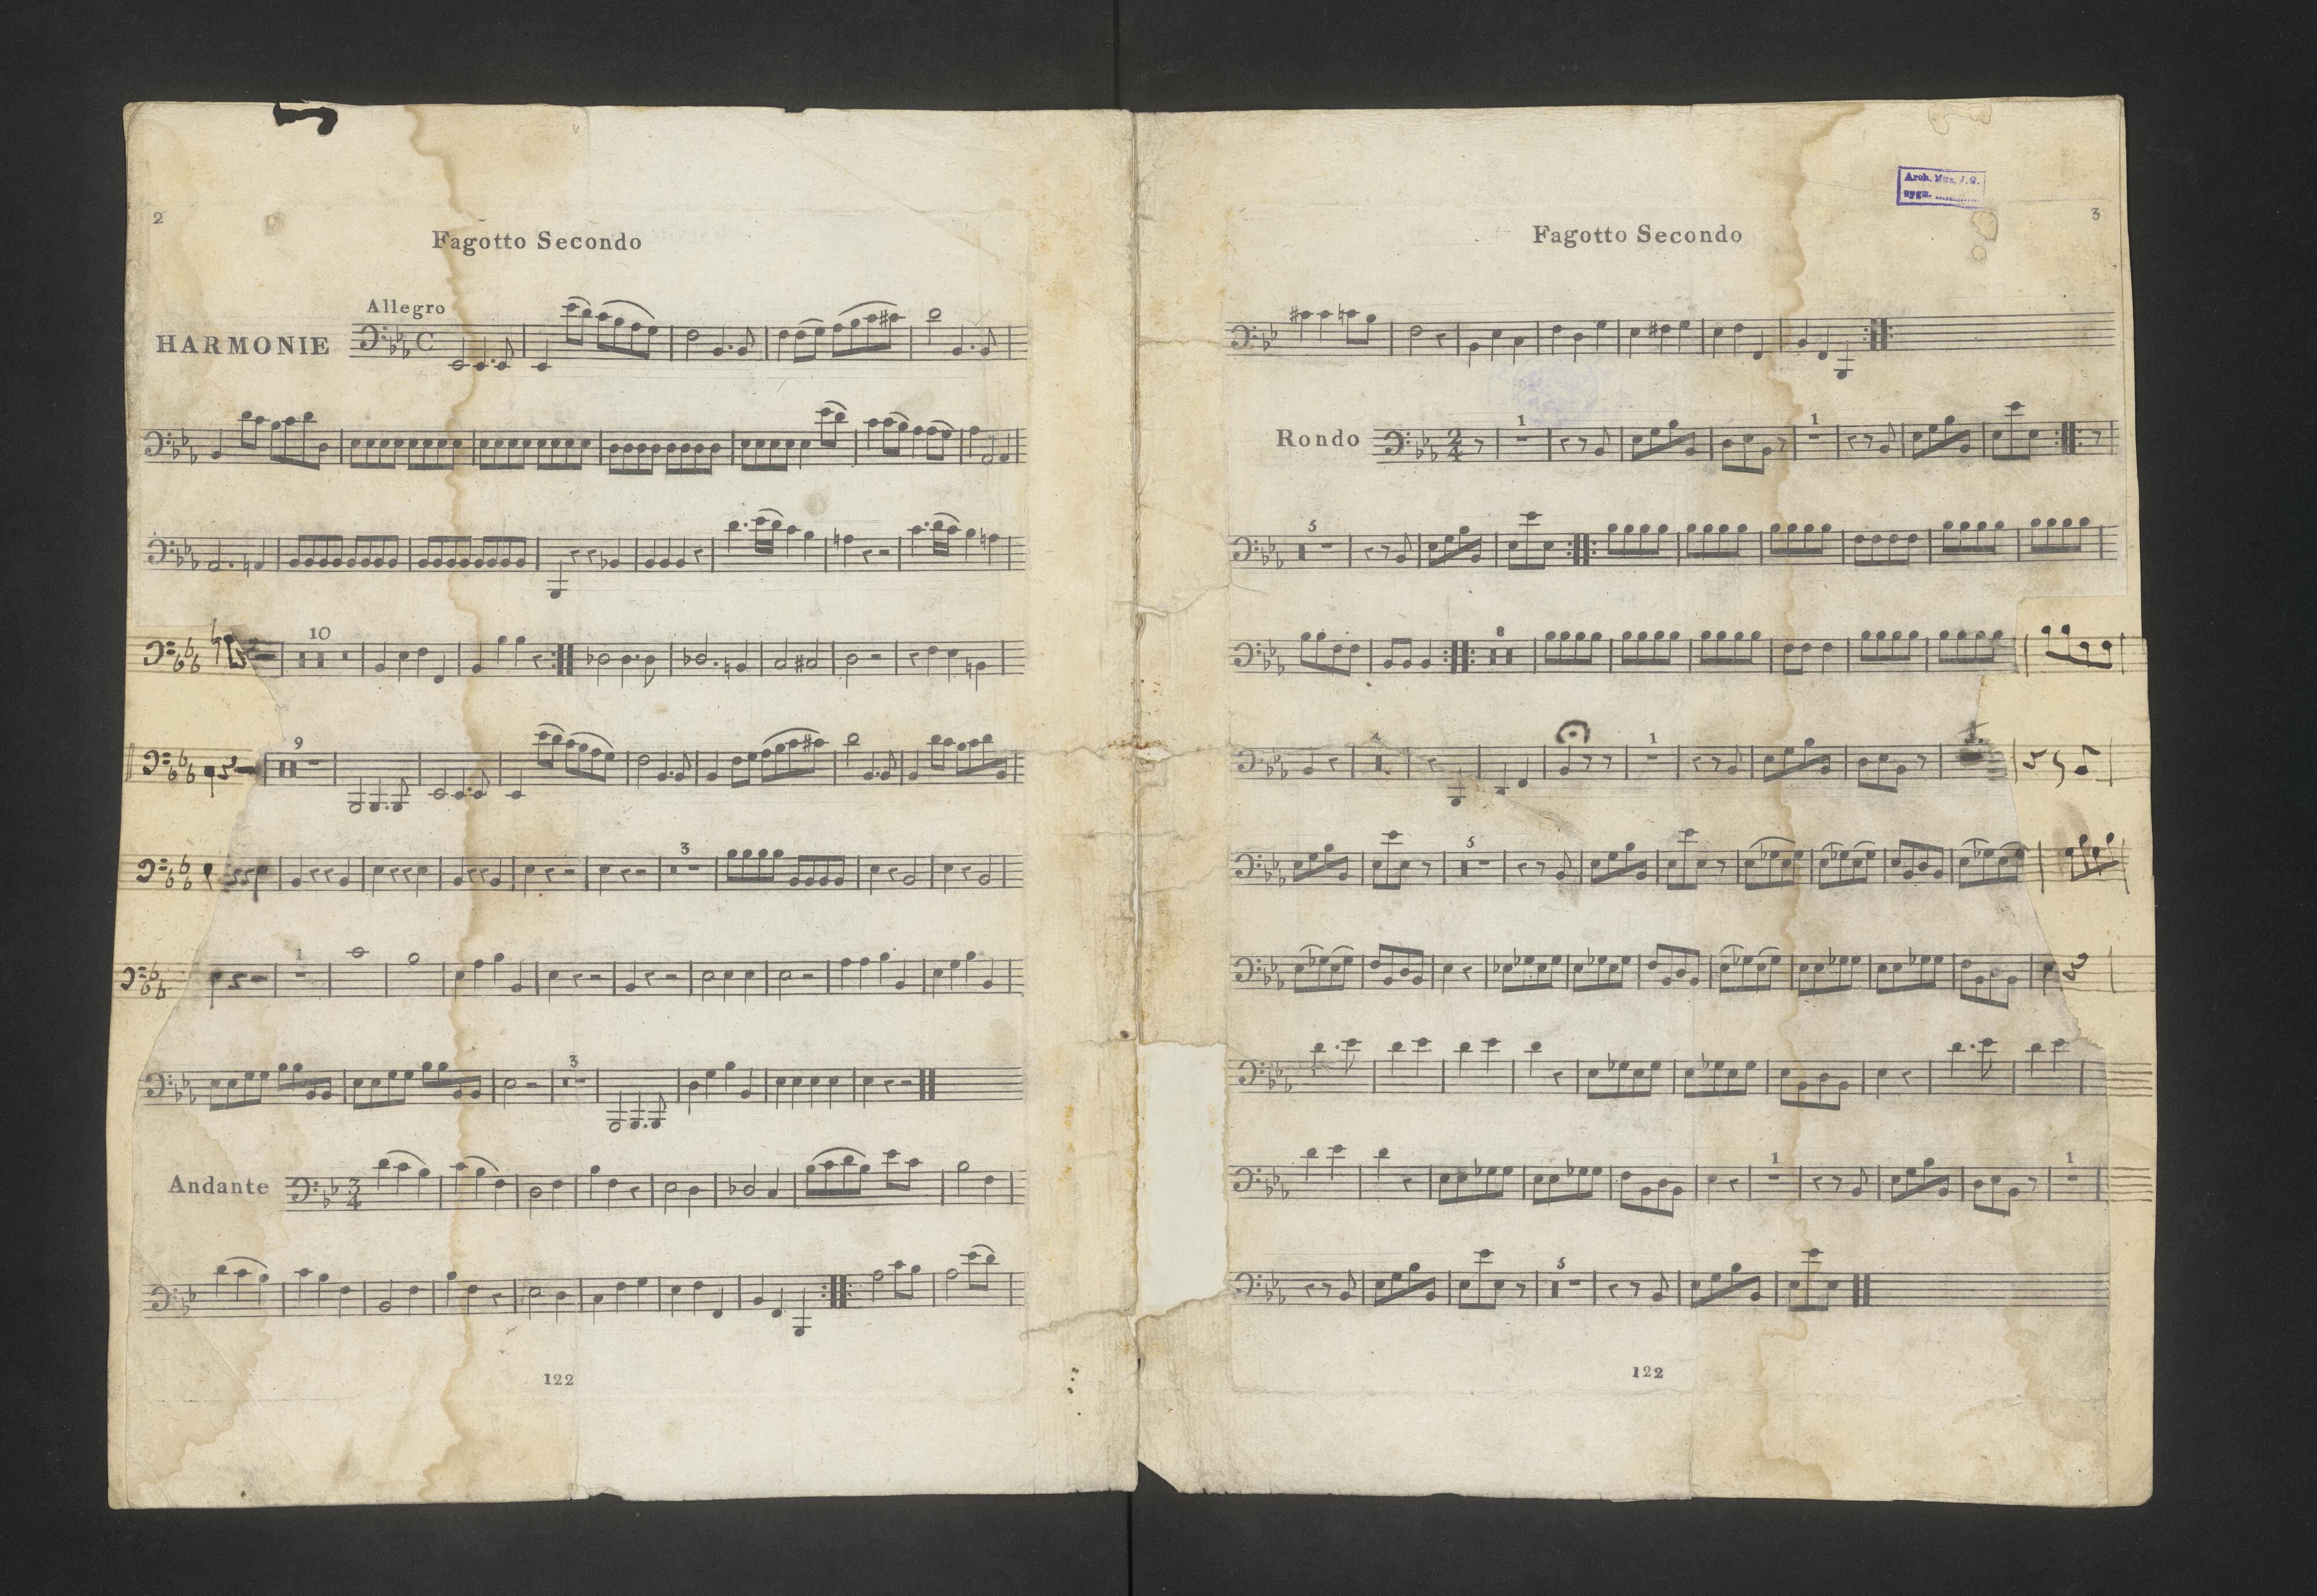 2
Fagotto Secondo
Allegro
HARMONIE
10
9
3
1
3
Andante
3
4
122
Arch. Mus. J. G.
sygn.
3
Fagotto Secondo
Rondo
2
4
1
1
5
8
1
1.
5
1
1
5
122